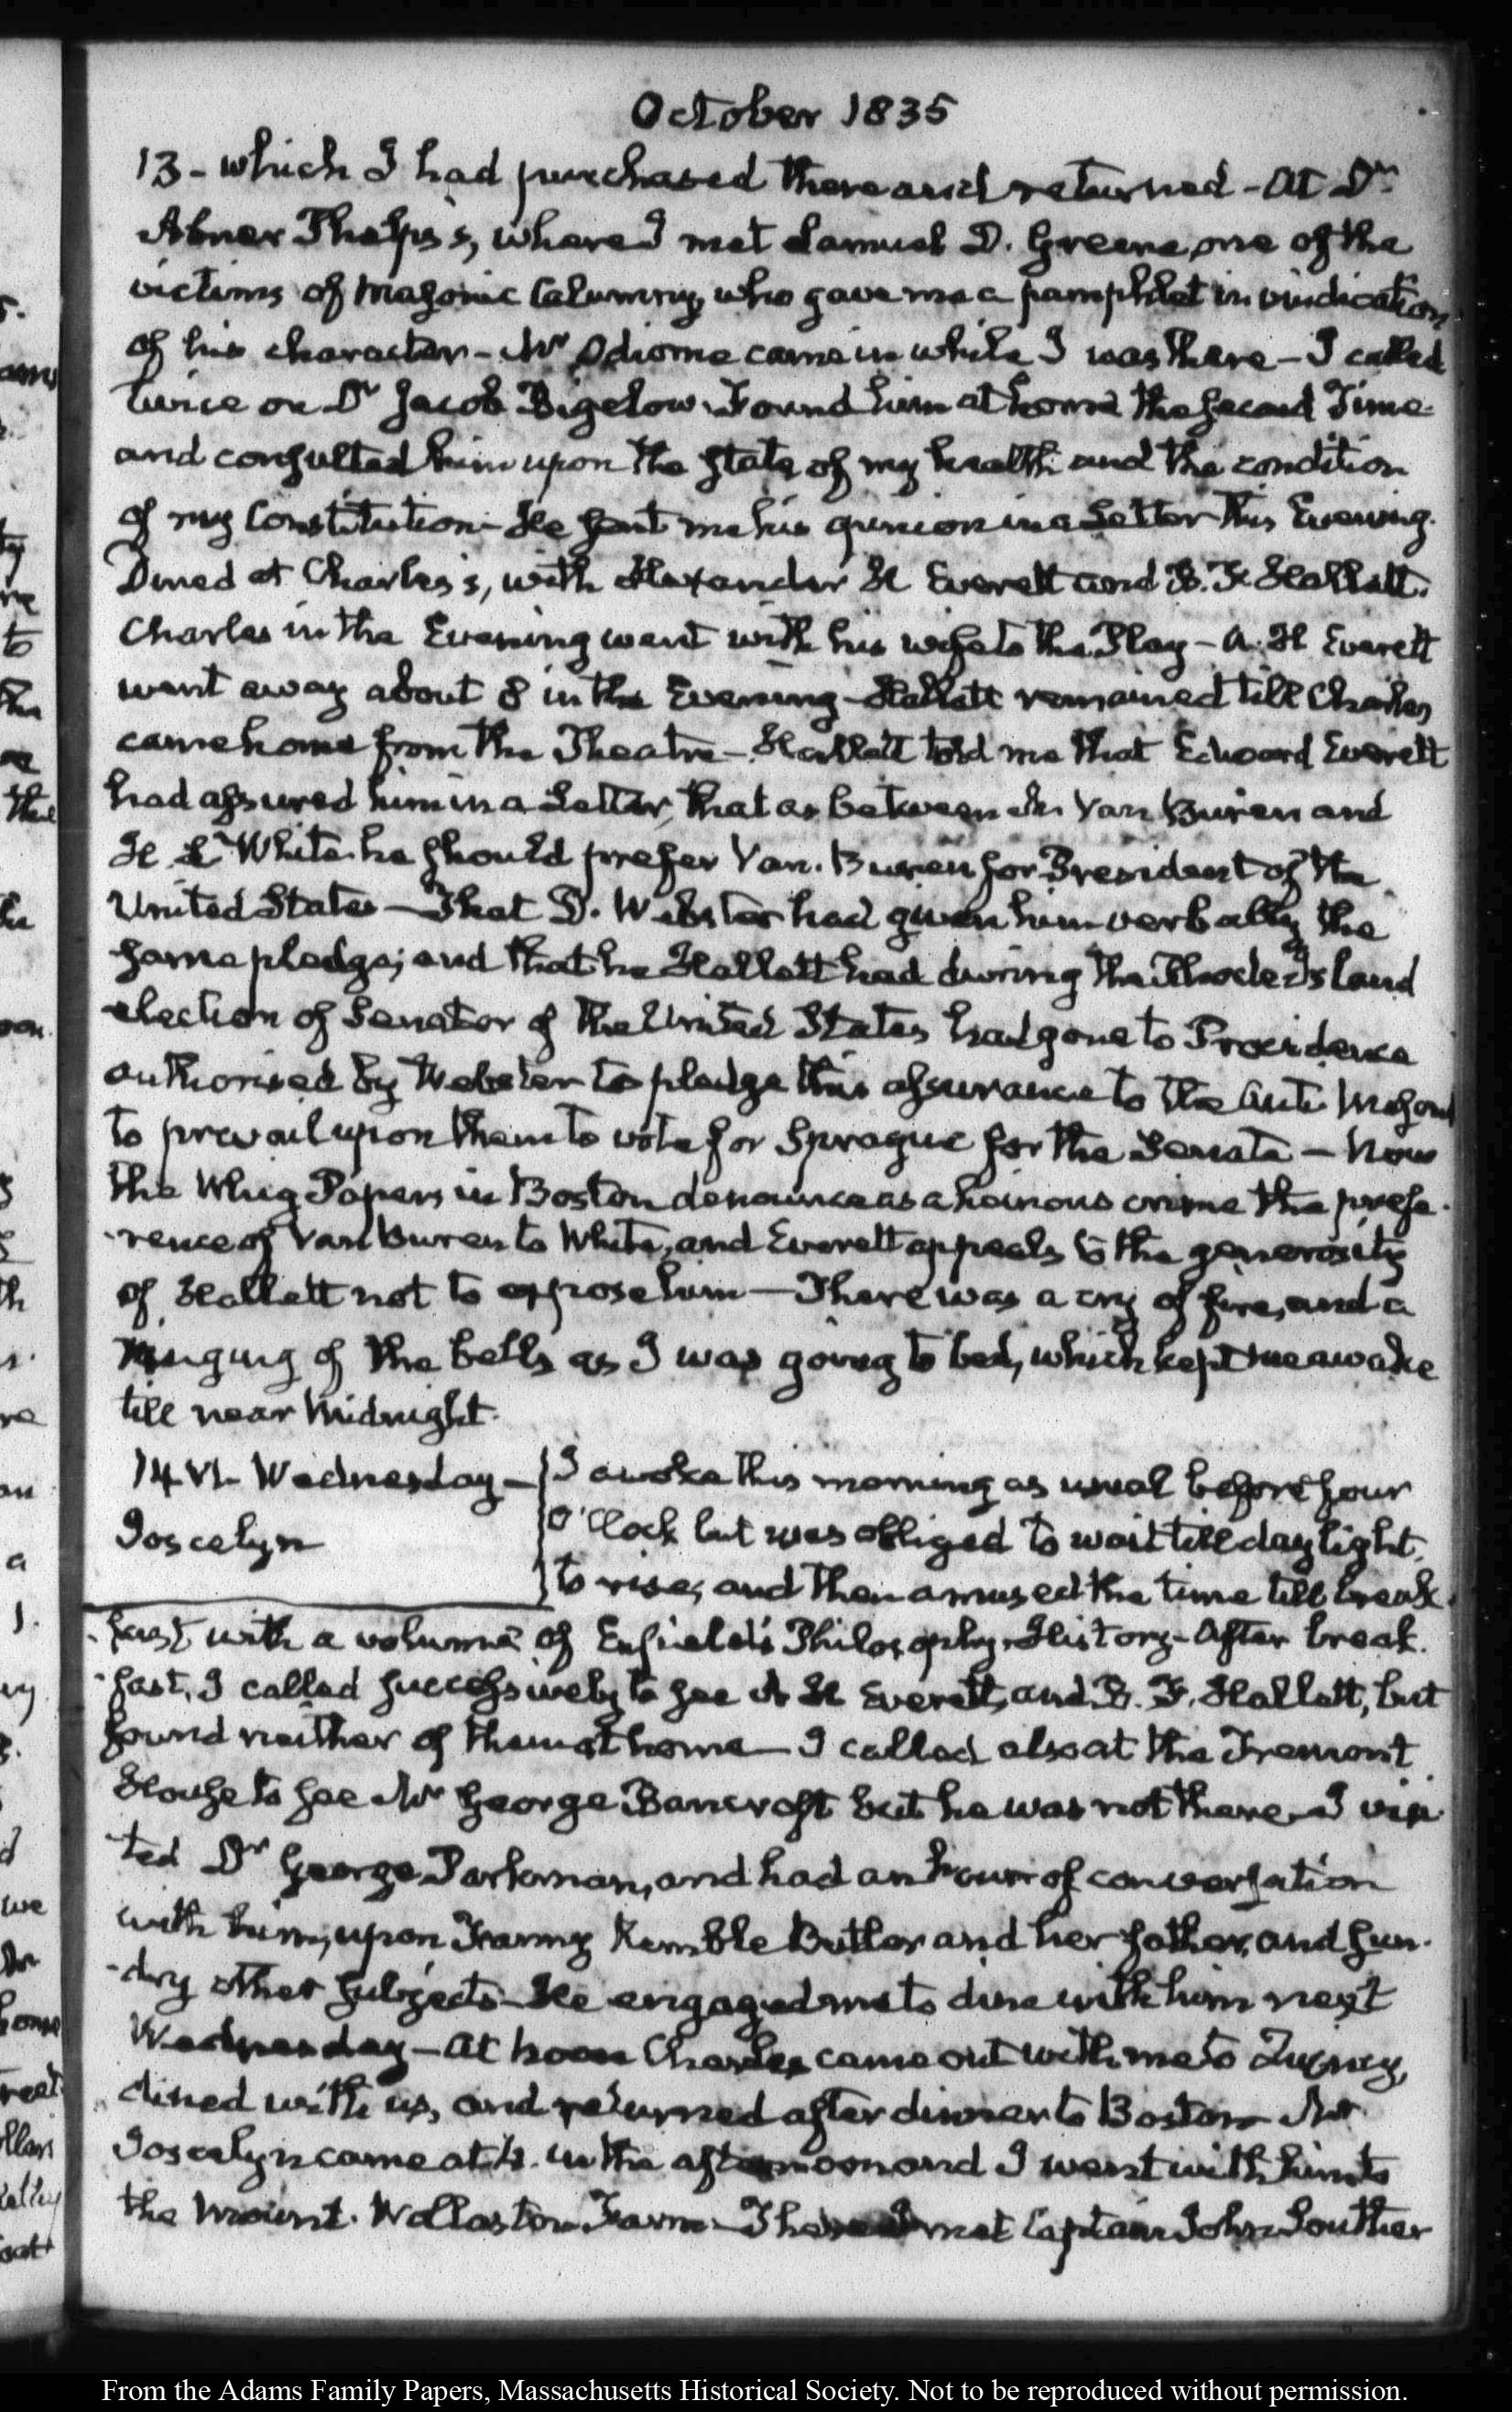 October 1835
13 - which I had purchased there and returned - At Dr.
Abner Phelps's, where I met Samuel D. Greene, one of the
victims of Masonic Calumny, who gave me a pamphlet in vindication
of his character - Mr Odiorne came in while I was there - I called
twice on Dr Jacob Bigelow. Found him at home the second Time
and consulted him upon the state of my health and the condition
of my Constitution - He sent me his opinion in a Letter this Evening.
Dined at Charles's, with Alexander H Everett and B. F. Hallett.
Charles in the Evening went with his wife to the Play - A. H Everett
went away about 8 in the Evening - Hallett remained till Charles
came home from the Theatre - Hallett told me that Edward Everett
had assured him in a Letter, that as between Mr Van Buren and
H L White he should prefer Van Buren for President of the
United States - That D. Webster had given him verbally the
same pledge; and that he Hallett had during the Rhode Island
election of Senator of the United States had gone to Providence
authorised by Webster to pledge this assurance to the Anti Masons
to prevail upon them to vote for Sprague for the Senate - Now
the Whig Papers in Boston denounce as a heinous crime the prefe-
-rence of Van Buren to White, and Everett appeals to the generosity
of Hallett not to oppose him - There was a cry of fire, and a
ringing of the bells as I was going to bed, which kept me awake
till near Midnight.
14 VI. Wednesday - I awoke this morning as usual before four
Joscelyn O'Clock but was obliged to wait till daylight.
to rise, and then amused the time till break-
-fast with a volume of Enfield's Philosophy History - After break-
-fast, I called successively to see A H Everett, and B. F. Hallett, but
found neither of them at home - I called also at the Tremont
House to see Mr George Bancroft but he was not there - I visi-
-ted Dr George Parkman, and had an hour of conversation
with him, upon Fanny Kemble Butler and her father, and sun-
-dry other subjects - He engaged me to dine with him next
Wednesday - At noon Charles came out with me to Quincy,
dined with us, and returned after dinner to Boston - Mr
Joscelyn came at 4. in the afternoon and I went with him to
the Mount Wollaston Farm - There I met Captain John Souther
From the Adams Family Papers, Massachusetts Historical Society. Not to be reproduced without permission.